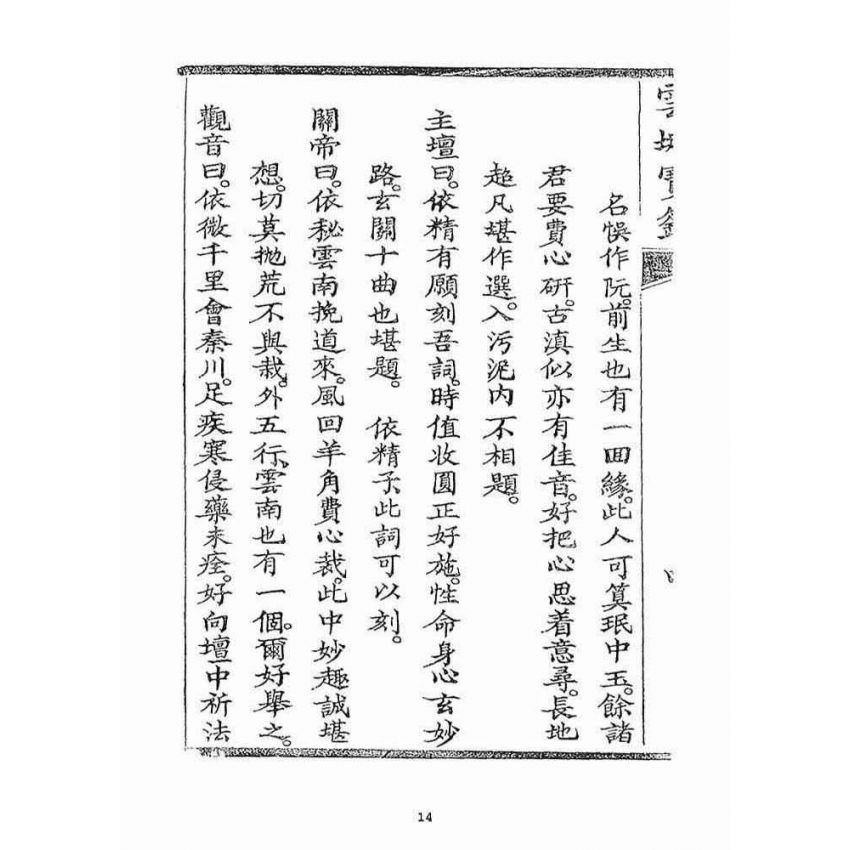 名悞作阮。前生也有一回緣。此人可算珉中玉。餘諸
君要費心研。古滇似亦有佳音。好把心思着意尋。長地
超凡堪作選。入污泥內不相題。
主壇曰。依精有願刻吾詞。時值收圓正好施。性命身心玄妙
路。玄關十曲也堪題。　依精子。此詞可以刻。
關帝曰。依秘雲南挽道來。風回羊角費心裁。此中妙趣誠堪
想。切莫拋荒不與栽。外五行。雲南也有一個。爾好舉之。
觀音曰。依微千里會秦川。足疾寒侵藥未痊。好向壇中祈法
14